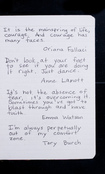 It is the mannering of life,
courage, and courage has
many faces.
Oriana Fallaci
Don't look at your feet
to see if you are doing
it right. Just dance.
Anne Lamott
It's not the absence of
fear, it's overcoming it.
Sometimes you've got to
blast through and have
faith.
Emma Watson
I'm always perpetually
out of my comfort
zone.
Tory Burch